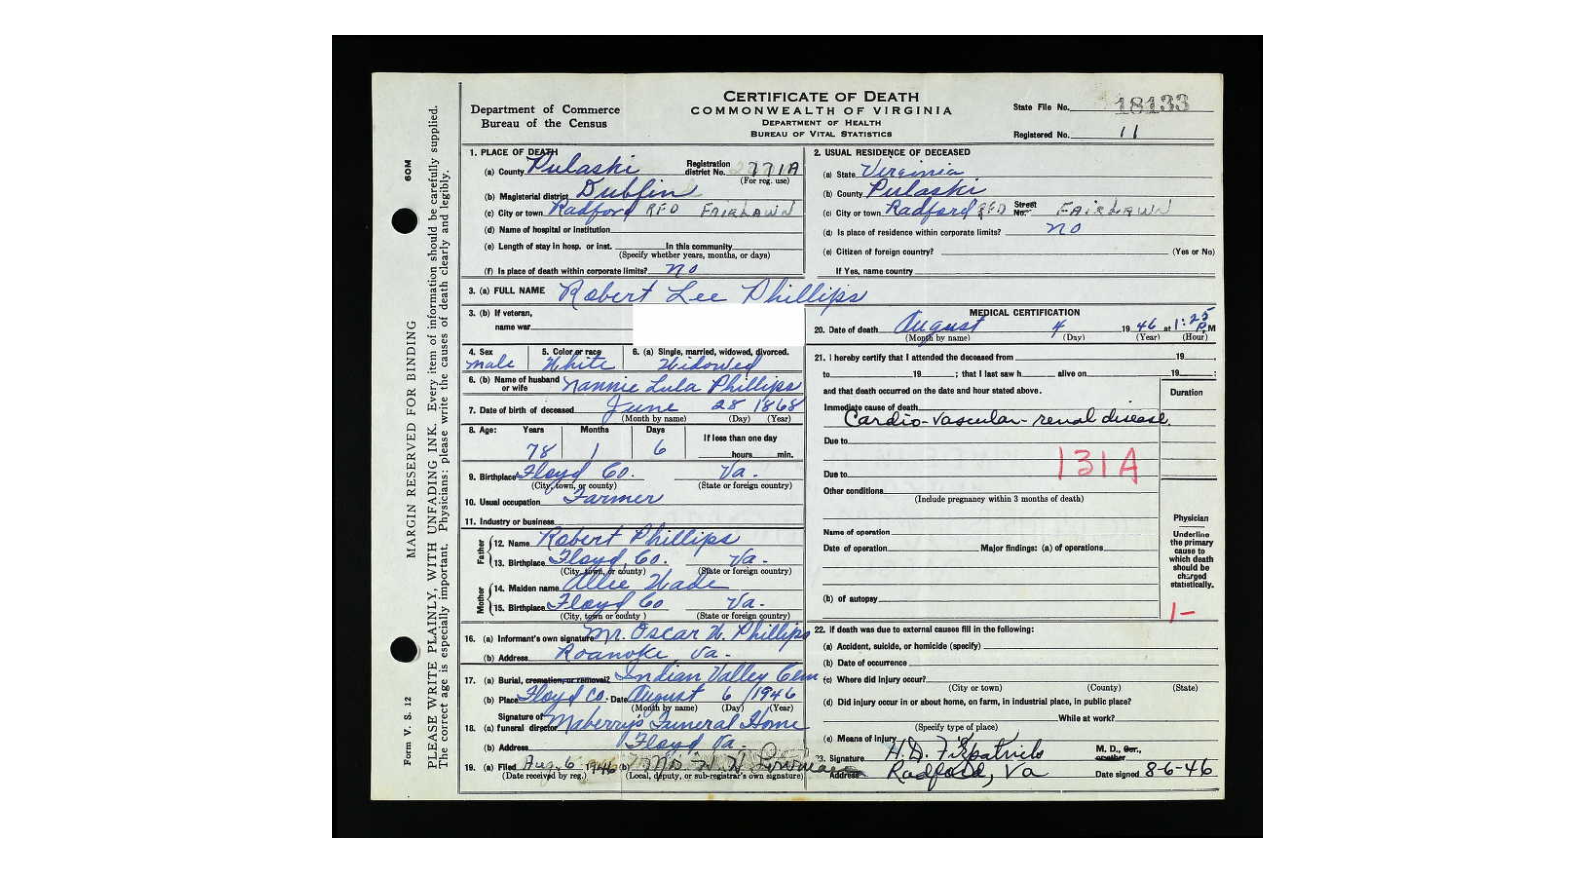 CERTIFICATE OF DEATH
COMMONWEALTH OF VIRGINIA
DEPARTMENT OF HEALTH
BUREAU OF VITAL STATISTICS
Department of Commerce
Bureau of the Census
State File No. 18133
Registered No. 11
60M
MARGIN RESERVED FOR BINDING
Form V. S. 12
PLEASE WRITE PLAINLY, WITH UNFADING INK. Every item of information should be carefully supplied.
The correct age is especially important. Physicians: please write the causes of death clearly and legibly.
1. PLACE OF DEATH
(a) County Pulaski Registration district No. 771A
(For reg. use)
(b) Magisterial district Dublin
(c) City or town Radford RFD FAIRLAWN
(d) Name of hospital or institution
(e) Length of stay in hosp. or inst. In this community
(Specify whether years, months, or days)
(f) Is place of death within corporate limits? no
2. USUAL RESIDENCE OF DECEASED
(a) State Virginia
(b) County Pulaski
(c) City or town Radford RFD Street No. FAIRLAWN
(d) Is place of residence within corporate limits? no
(e) Citizen of foreign country? (Yes or No)
If Yes, name country
3. (a) FULL NAME Robert Lee Phillips
3. (b) If veteran,
name war
4. Sex 5. Color or race 6. (a) Single, married, widowed, divorced.
male White Widowed
6. (b) Name of husband or wife Nannie Lula Phillips
7. Date of birth of deceased June 28 1868
(Month by name) (Day) (Year)
8. Age: Years Months Days If less than one day
78 1 6 hours min.
9. Birthplace Floyd Co. Va.
(City, town, or county) (State or foreign country)
10. Usual occupation Farmer
11. Industry or business
Father
12. Name Robert Phillips
13. Birthplace Floyd Co. Va.
(City, town, or county) (State or foreign country)
Mother
14. Maiden name Allie Wade
15. Birthplace Floyd Co Va.
(City, town or county) (State or foreign country)
16. (a) Informant's own signature Mr. Oscar W. Phillips
(b) Address Roanoke, Va.
17. (a) Burial, cremation, or removal? Indian Valley Cem
(b) Place Floyd Co. Date August 6 1946
(Month by name) (Day) (Year)
18. Signature of (a) funeral director Maberry's Funeral Home
(b) Address Floyd Va.
19. (a) Filed Aug. 6 1946 (b) Mrs
(Date received by reg.) (Local, deputy, or sub-registrar's own signature)
MEDICAL CERTIFICATION
20. Date of death August 4 1946 at 1:25 P.M
(Month by name) (Day) (Year) (Hour)
21. I hereby certify that I attended the deceased from 19
to 19 ; that I last saw h alive on 19 ;
and that death occurred on the date and hour stated above.
Duration
Immediate cause of death
Cardio-vascular-renal disease.
Due to
131A
Due to
Other conditions
(Include pregnancy within 3 months of death)
Name of operation
Date of operation Major findings: (a) of operations
(b) of autopsy
Physician
Underline
the primary
cause to
which death
should be
charged
statistically.
1-
22. If death was due to external causes fill in the following:
(a) Accident, suicide, or homicide (specify)
(b) Date of occurrence
(c) Where did injury occur?
(City or town) (County) (State)
(d) Did injury occur in or about home, on farm, in industrial place, in public place?
While at work?
(Specify type of place)
(e) Means of Injury
23. Signature H.D. Fitzpatrick M. D., Cor., or other
Address Radford, Va Date signed 8-6-46